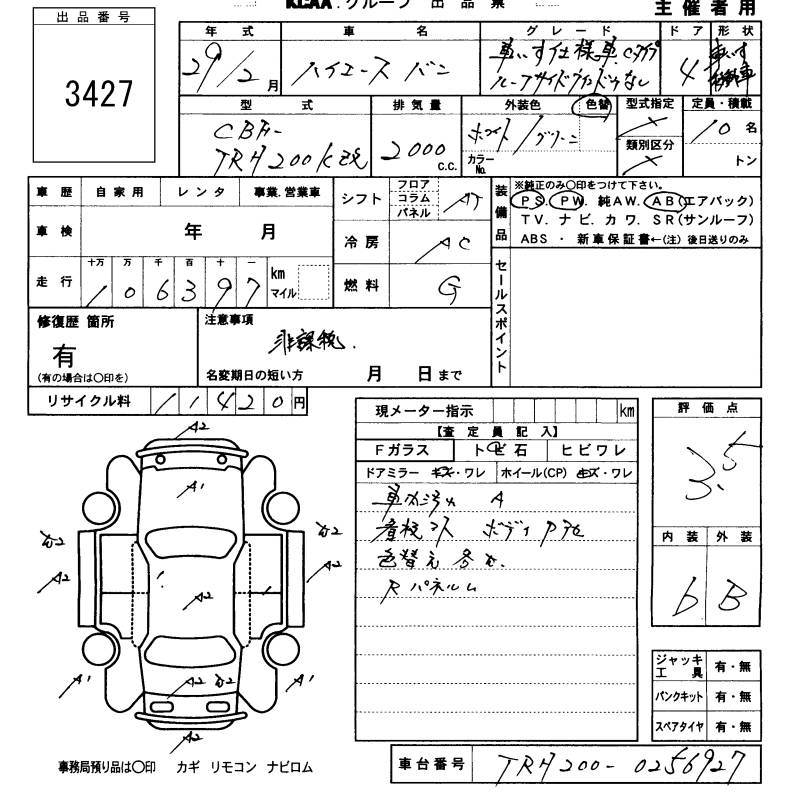 KCAA.グループ 出品票
主催者用
出品番号
3427
年式 車名 グレード ドア 形状
29/2月 ハイエース バン 車いす仕様車 Cタイプ 4 車いす
ルーフサイドウインドウなし 移動車
型式 排気量 外装色 色替 型式指定 定員・積載
CBF- ホワイト/グリーン × 10名
TRH200K改 2000 C.C. カラーNo. 類別区分 × トン
車歴 自家用 レンタ 事業.営業車
シフト フロア コラム パネル AT
装備品
※純正のみ〇印をつけて下さい。
PS. PW. 純AW. AB(エアバック)
TV. ナビ. カワ. SR(サンルーフ)
ABS ・ 新車保証書←(注)後日送りのみ
車検 年 月
冷房 AC
走行 十万 万 千 百 十 一
106397 km マイル
燃料 G
セールスポイント
修復歴 箇所
有
(有の場合は〇印を)
注意事項
非課税.
名変期日の短い方 月 日まで
リサイクル料 11420円
現メーター指示 km
【査定員記入】
Fガラス トビ石 ヒビワレ
ドアミラー キズ・ワレ ホイール(CP) キズ・ワレ
A
色替え
Rパネルム
評価点
3.5
内装 外装
b B
ジャッキ工具 有・無
パンクキット 有・無
スペアタイヤ 有・無
A2
A1
A2
A2
A2
A2
A1
A2
A1
A2
事務局預り品は〇印 カギ リモコン ナビロム
車台番号 TRH200-0256927